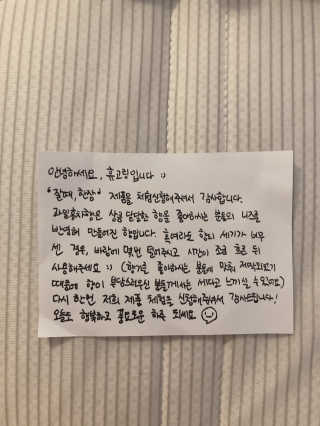 안녕하세요, 휴고림입니다 :)
"잘때, 한장" 제품을 체험신청해주셔서 감사합니다.
과일홍차향은 상큼 달달한 향을 좋아하시는 분들의 니즈를
반영해 만들어진 향입니다. 혹여라도 향의 세기가 너무
센 경우, 바람에 몇번 털어주시고 시간이 조금 흐른 뒤
사용해주세요 :) (향기를 좋아하시는 분들에 맞춰 제작되었기
때문에 향이 부담스러우신 분들께서는 세다고 느끼실 수 있어요)
다시 한번 저희 제품 체험을 신청해주셔서 감사드립니다!
오늘도 행복하고 풍요로운 하루 되세요